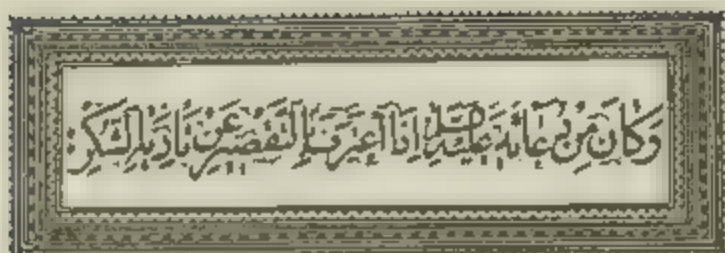 وَكَانَ مِنْ دُعَائِهِ عَلَيْهِ السَّلَامُ اِذَا اعْتَرَفَ بِالتَّقْصِيرِ عَنْ تَأْدِيَةِ الشُّكْرِ